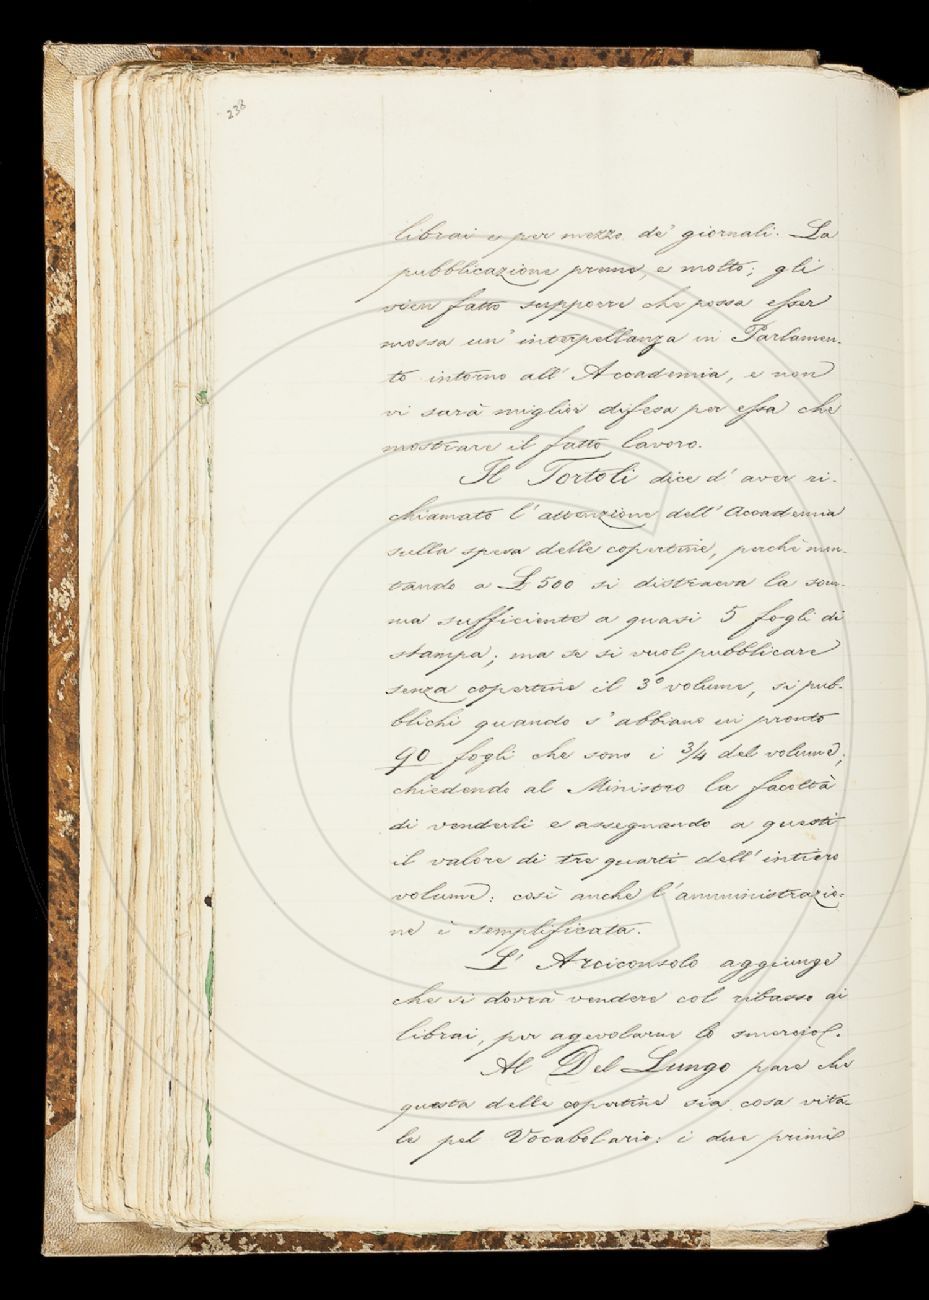 238
librai e per mezzo de' giornali. La
pubblicazione preme, e molto; gli
vien fatto supporre che possa esser
mossa un' interpellanza in Parlamen-
to intorno all' Accademia, e non
vi sarà miglior difesa per essa che
mostrare il fatto lavoro.
Il Tortoli dice d' aver ri-
chiamato l' attenzione dell' Accademia
sulla spesa delle copertine, perchè mon-
tando a £ 500 si distraeva la som-
ma sufficiente a quasi 5 fogli di
stampa; ma se si vuol pubblicare
senza copertine il 3º volume, si pub-
blichi quando s' abbiano in pronto
90 fogli che sono i 3/4 del volume;
chiedendo al Ministro la facoltà
di venderli e assegnando a questi
il valore di tre quarti dell' intiero
volume: così anche l' amministrazio-
ne è semplificata.
L' Arciconsolo aggiunge
che si dovrà vendere col ribasso ai
librai, per agevolarne lo smercio.
Al Del Lungo pare che
questa delle copertine sia cosa vita-
le pel Vocabolario: i due primi